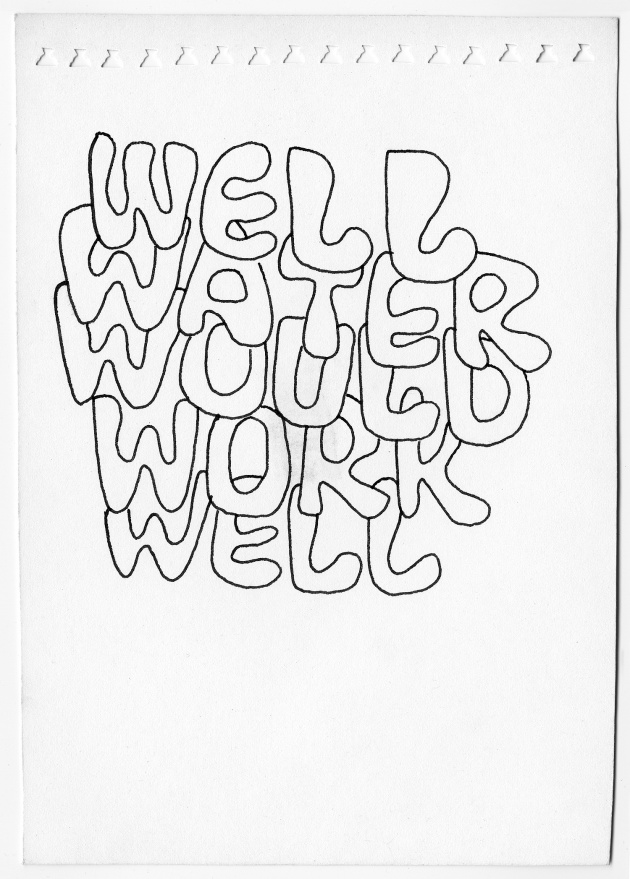 WELL
WATER
WOULD
WORK
WELL